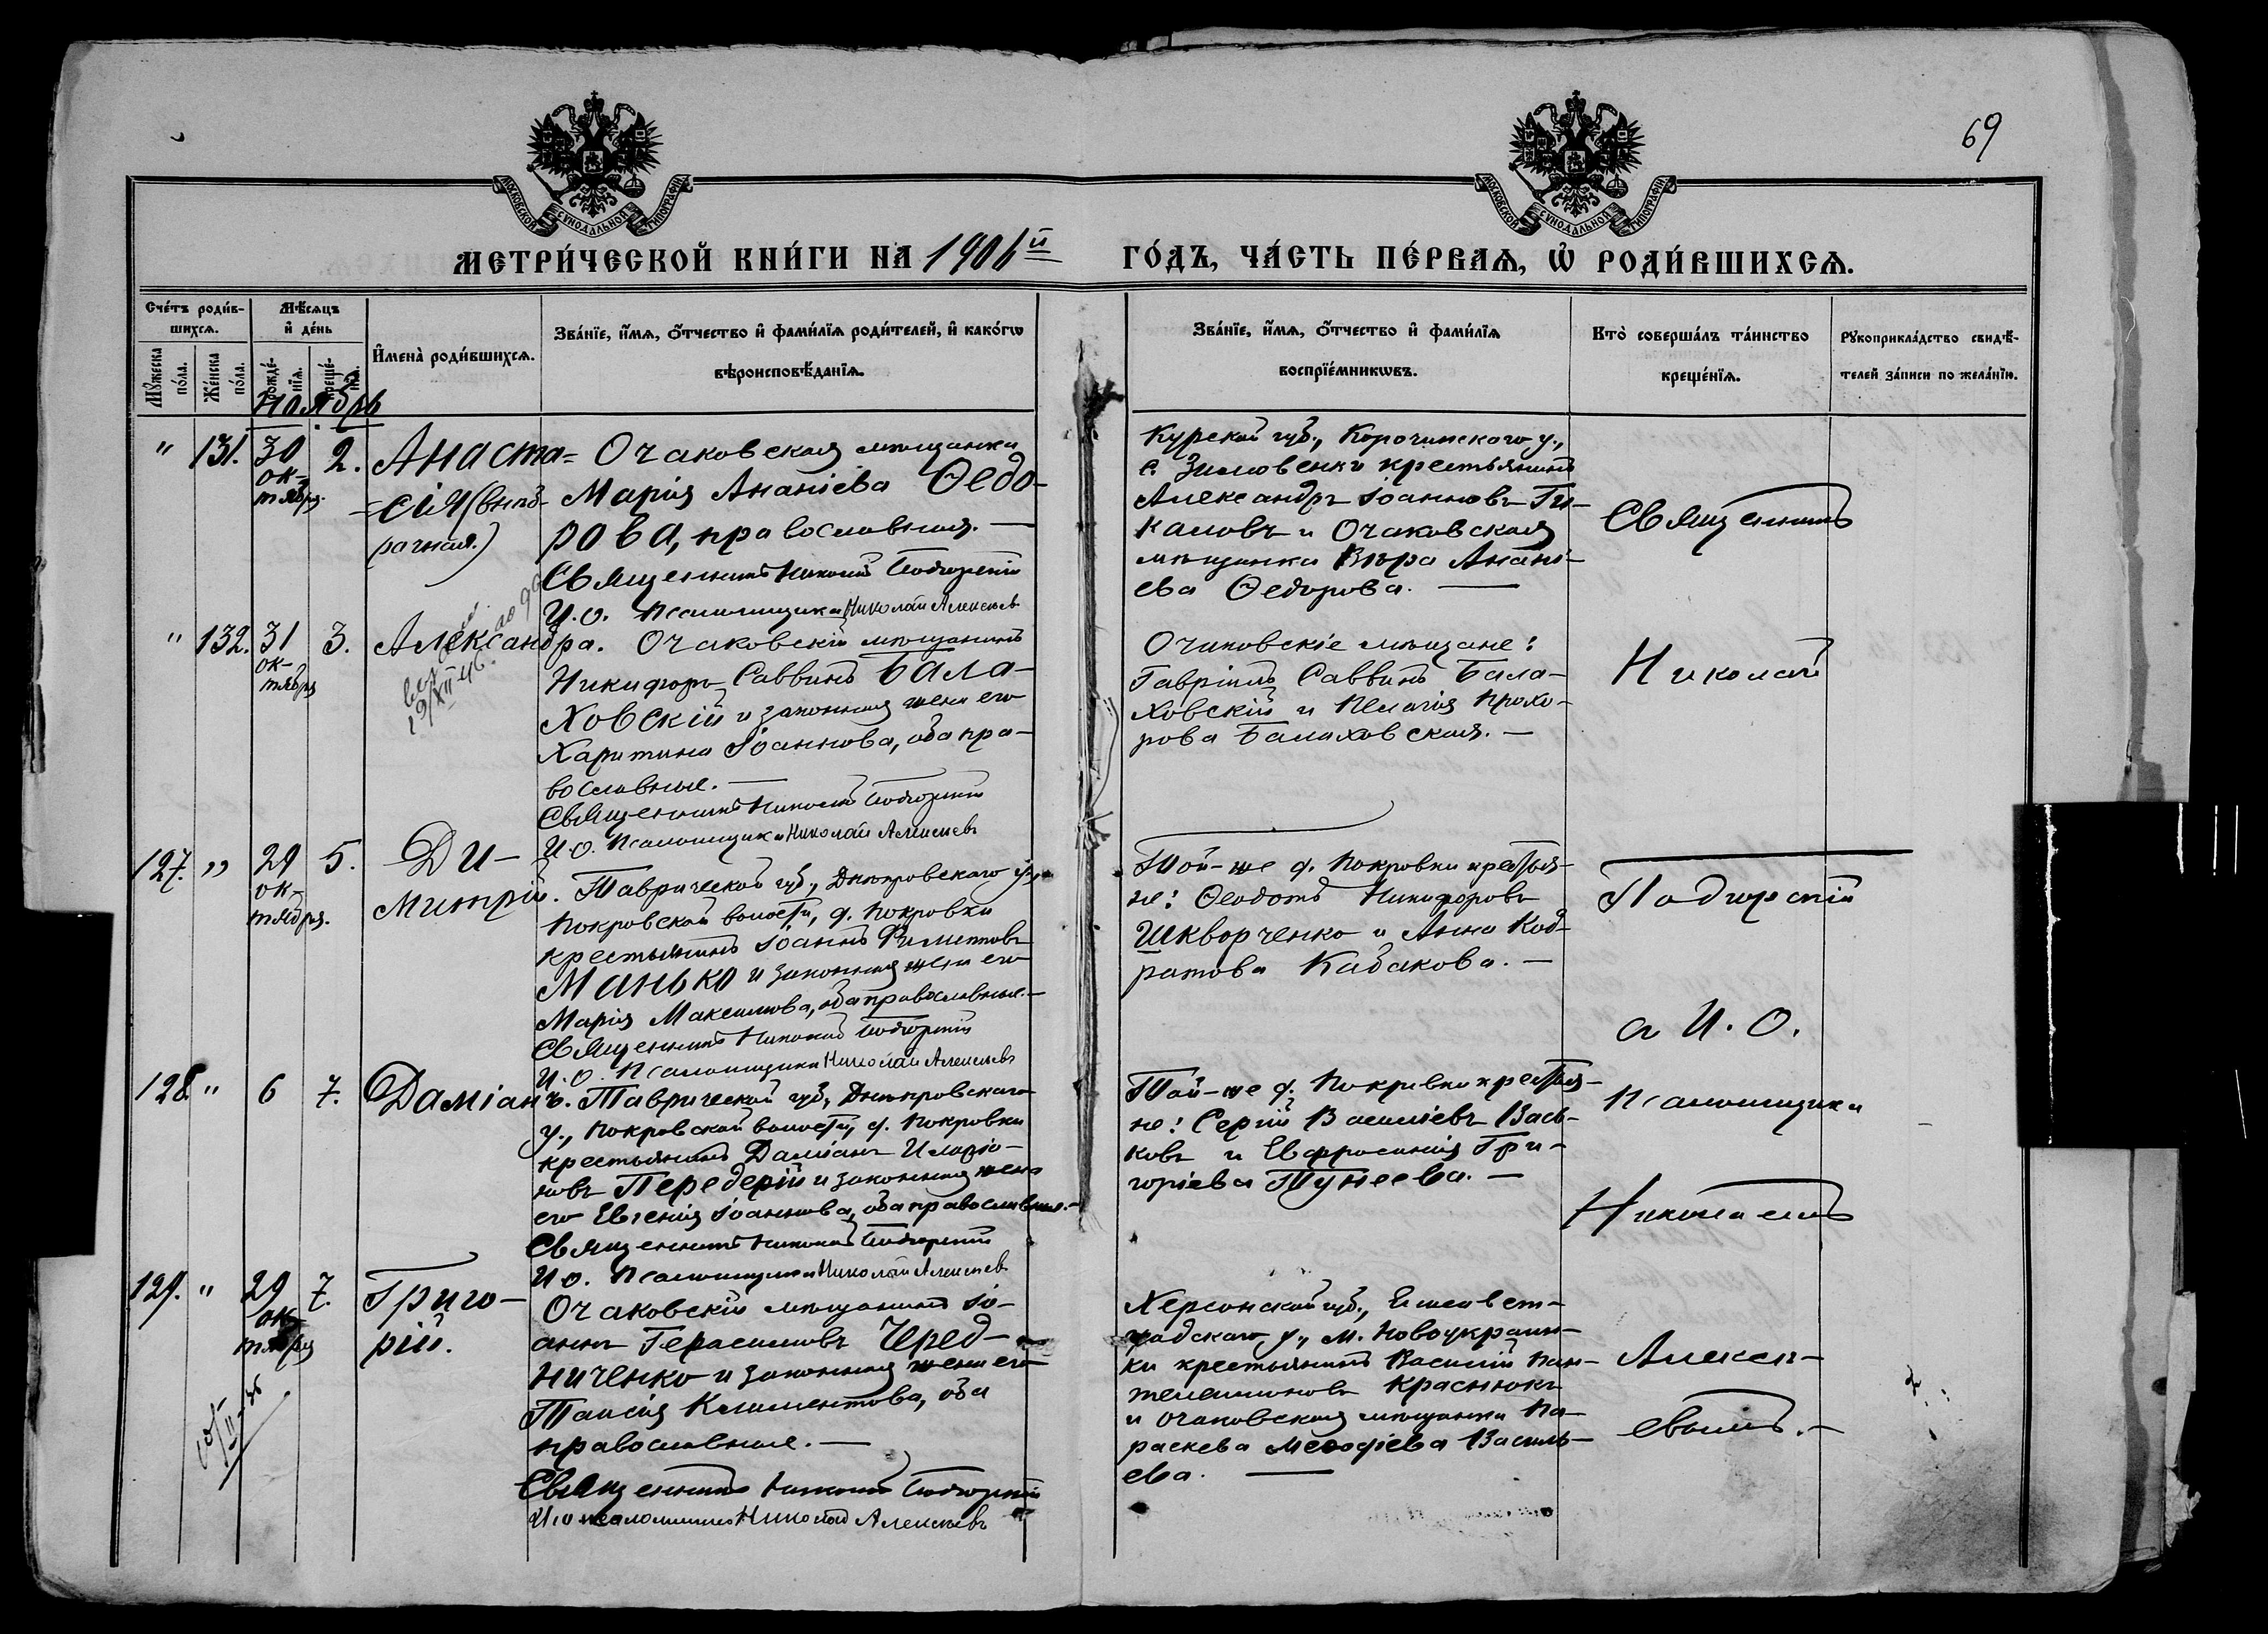 69
МОСКОВСКОЙ СѴНОДАЛЬНОЙ ТИПОГРАФІИ
МОСКОВСКОЙ СѴНОДАЛЬНОЙ ТИПОГРАФІИ
МЕТРИ́ЧЕСКОЙ КНИ́ГИ НА 1906й ГО́ДЪ, ЧА́СТЬ ПЕ́РВАѦ, Ѡ РОДИ́ВШИХСѦ.
Сче́тъ роди́в-
шихсѧ.
Мꙋ́жеска по́ла.
Же́нска по́ла.
Мѣ́сѧцъ
и҆ де́нь
рожде́-
нїѧ.
креще́-
нїѧ.
И҆мена̀ роди́вшихсѧ.
Зва́нїе, и҆́мѧ, ѻ҆́тчество и҆ фами́лїѧ роди́телей, и҆ како́гѡ
вѣроисповѣ́данїѧ.
Зва́нїе, и҆́мѧ, ѻ҆́тчество и҆ фами́лїѧ
воспрїе́мникѡвъ.
Кто̀ соверша́лъ та́инство
креще́нїѧ.
Рꙋкоприкла́дство свидѣ́-
телей за́писи по жела́нїю.
Ноябрь
" 131. 30
ок-
тября.
2.
Анаста=
=сія (внѣб-
рачная.)
Очаковская мѣщанка
Марія Ананіева Ѳедо-
рова, православная. —
Священникъ Николай Подгорскій
И. о. Псаломщика Николай Алексѣевъ
Курской губ., Корочинскаго у.,
с. Зимовенки крестьянинъ
Александръ Іоанновъ Ти-
Очаковская
мѣщанка Вѣра Анані-
ева Ѳедорова. —
" 132. 31
ок-
тября
3.
Александра.
Очаковскій мѣщанинъ
Никифоръ Саввинъ Бала-
ховскій и законная жена его
Харитина Іоаннова, оба пра-
вославные. —
Священникъ Николай Подгорскій
И. о. Псаломщика Николай Алексѣевъ
Очаковскіе мѣщане:
Гавріилъ Саввинъ Бала-
ховскій и Пелагія Прохо-
рова Балаховская. —
127. " 29
ок-
тября.
5.
Ди-
митрій.
Таврической губ., Днѣпровскаго у.,
Покровской волости, д. Покровки
крестьянинъ Іоаннъ
Манько и законная жена его
Марія Максимова, оба православные. —
Священникъ Николай Подгорскій
И. О. Псаломщика Николай Алексѣевъ
Той-же д. Покровки крестья-
не: Ѳеодотъ Никифоровъ
Шкворченко и Анна Код-
ратова Кабакова. —
128. " 6 7.
Даміанъ.
Таврической губ., Днѣпровскаго
у., Покровской волости, д. Покровки
крестьянинъ Даміанъ Иларіо-
новъ Передерій и законная жена
его Евгенія Іоаннова, оба православные. —
Священникъ Николай Подгорскій
И. о. Псаломщика Николай Алексѣевъ
Той-же д. Покровки крестья-
не: Сергій Василіевъ Вась-
ковъ и Евфросинія Гри-
горіева Тунеева. —
129. " 29
ок-
тября
7.
Григо-
рій.
Очаковскій мѣщанинъ Іо-
аннъ Герасимовъ Черед-
ниченко и законная жена его
Таисія Климентова, оба
православные. —
Священникъ Николай Подгорскій
И. о. псаломщика Николай Алексѣевъ
Херсонской губ., Елисавет-
градскаго у., м. Новоукраин-
ки крестьянинъ Василій Пан-
телеимоновъ Краснюкъ
и Очаковская мѣщанка Па-
раскева Меѳодіева Василь-
ева. —
Священникъ
Николай
Подгорскій
съ И. О.
Псаломщика
Николаемъ
Алексѣ-
евымъ. —